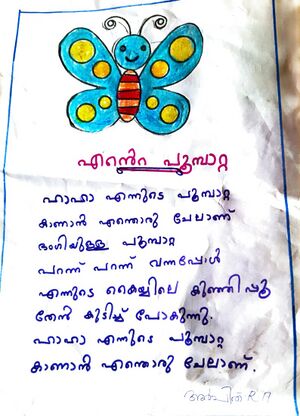 എന്റെ പൂമ്പാറ്റ
ഹാഹാ എന്നുടെ പൂമ്പാറ്റ
കാണാൻ എന്തൊരു ചേലാണ്
ഭംഗിയുള്ള പൂമ്പാറ്റ
പറന്ന് പറന്ന് വന്നപ്പോൾ
എന്നുടെ കൈയ്യിലെ കുഞ്ഞിപ്പൂ
തേൻ കുടിച്ച് പോകുന്നു.
ഹാഹാ എന്നുടെ പൂമ്പാറ്റ
കാണാൻ എന്തൊരു ചേലാണ്.